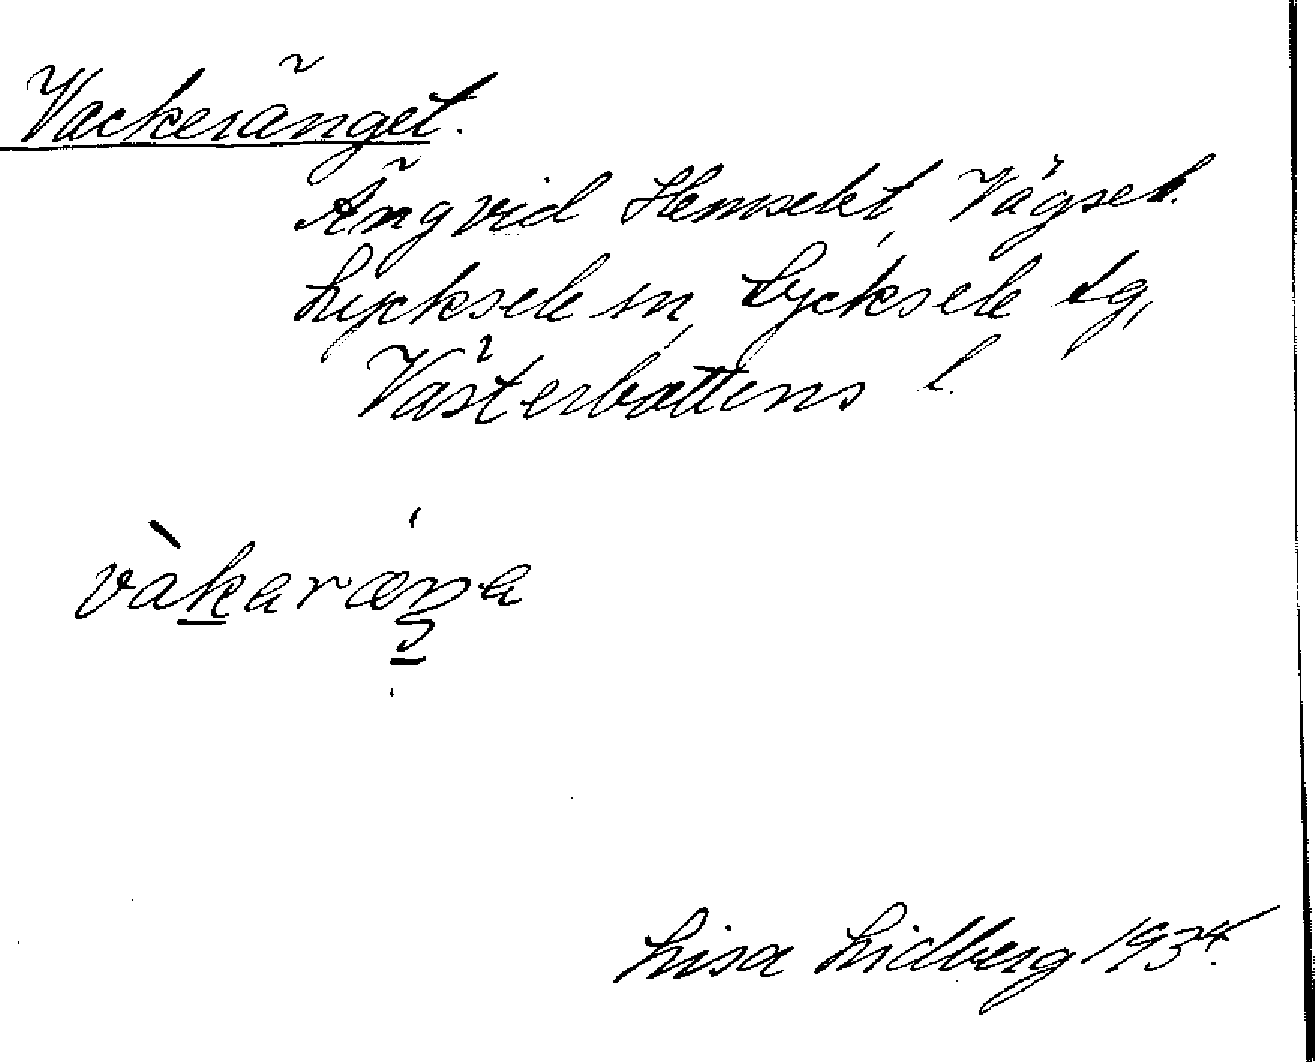 Vackeränget.
Äng vid Hemselet, Vägsel.
Lycksele sn, Lycksele lg,
Västerbottens l.
vàkaræŋa
Lisa Lidberg 1934.